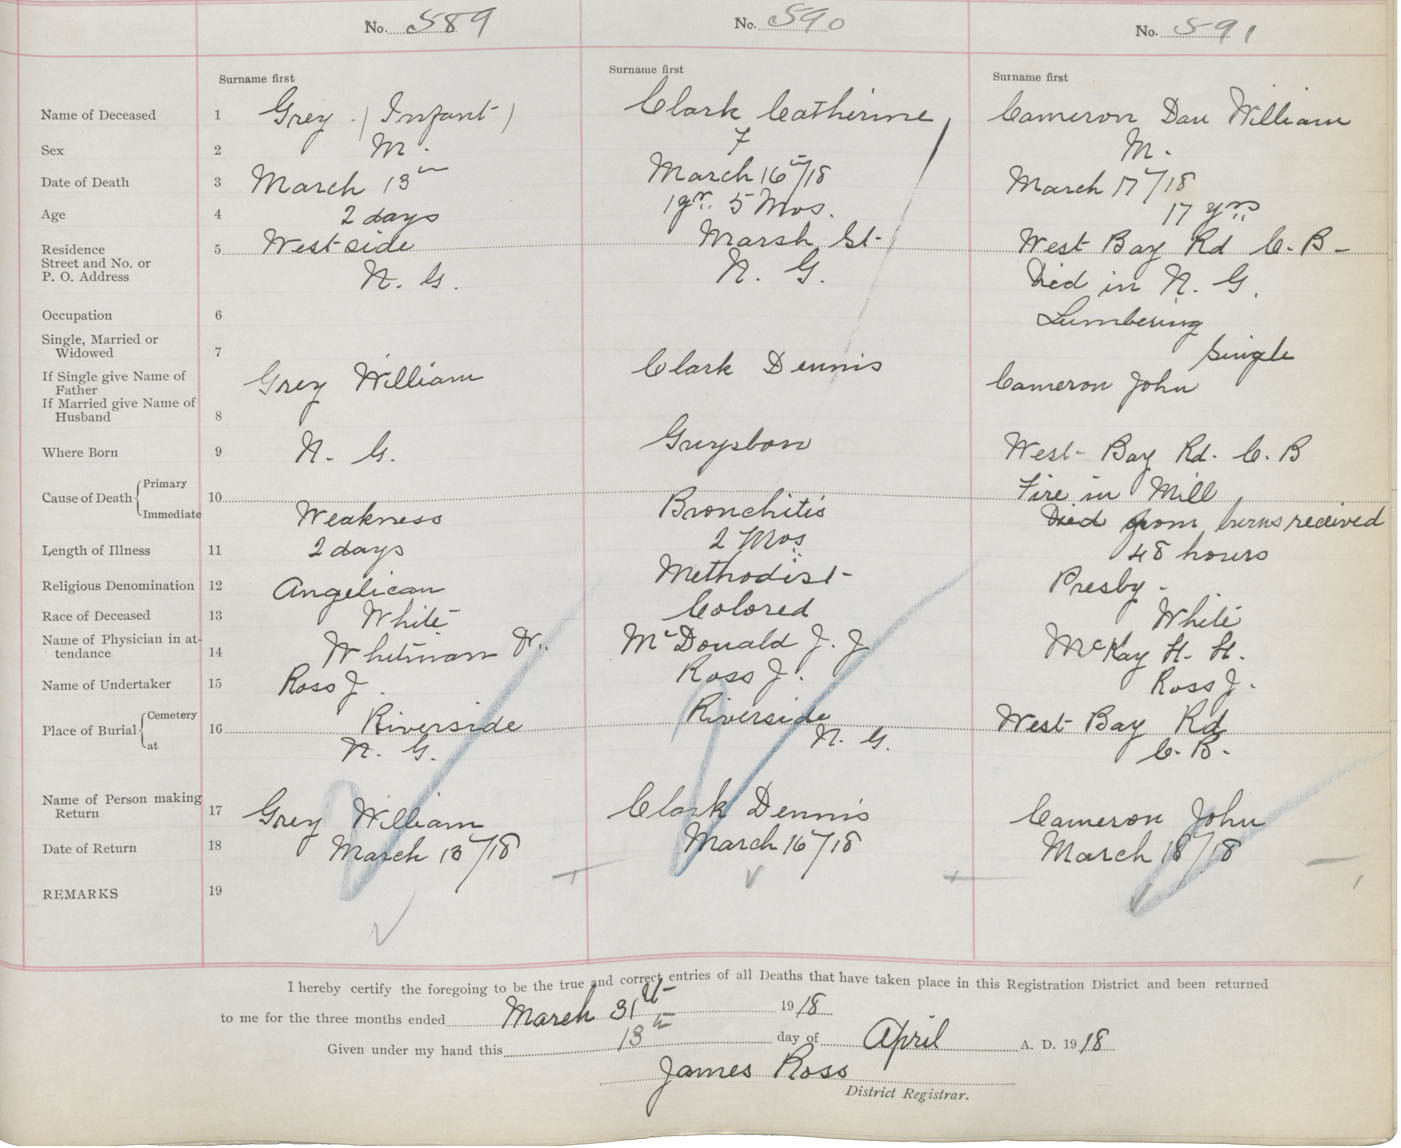 No. 589 No. 590 No. 591
Surname first Surname first Surname first
Name of Deceased 1 Grey (Infant) Clark Catherine Cameron Dan William
Sex 2 M. F M.
Date of Death 3 March 13th March 16th/18 March 17/18
Age 4 2 days 1 yr. 5 Mos. 17 yrs
Residence 5 West side Marsh St. West Bay Rd C. B.
Street and No. or
P. O. Address N. G. N. G. Died in N. G.
Occupation 6 Lumbering
Single, Married or
Widowed 7 Single
If Single give Name of
Father Grey William Clark Dennis Cameron John
If Married give Name of
Husband 8
Where Born 9 N. G. Guysboro West Bay Rd. C. B
Cause of Death { Primary 10 Fire in Mill
Immediate Weakness Bronchitis Died from burns received
Length of Illness 11 2 days 2 Mos. 48 hours
Religious Denomination 12 Angelican Methodist Presby.
Race of Deceased 13 White Colored White
Name of Physician in at-
tendance 14 Whitman Dr. McDonald J. J McKay H. H.
Name of Undertaker 15 Ross J. Ross J. Ross J.
Place of Burial { Cemetery 16 Riverside Riverside West Bay Rd
at N. G. N. G. C. B.
Name of Person making
Return 17 Grey William Clark Dennis Cameron John
Date of Return 18 March 13/18 March 16/18 March 18/18
REMARKS 19
I hereby certify the foregoing to be the true and correct entries of all Deaths that have taken place in this Registration District and been returned
to me for the three months ended March 31st 1918
Given under my hand this 13th day of April A. D. 1918
James Ross
District Registrar.